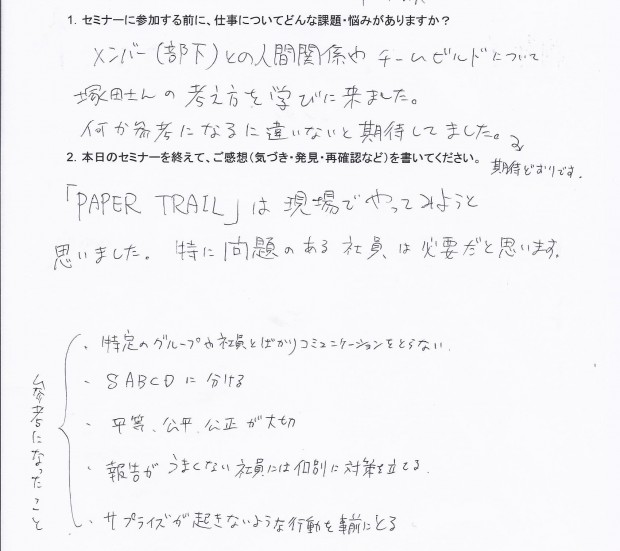 1. セミナーに参加する前に、仕事についてどんな課題・悩みがありますか？
メンバー(部下)との人間関係や チームビルドについて
塚田さんの 考え方を 学びに来ました。
何か参考になるに違いないと期待してました。
2. 本日のセミナーを終えて、ご感想(気づき・発見・再確認など)を書いてください。
期待どおりです。
「PAPER TRAIL」は 現場でやってみようと
思いました。 特に 問題のある 社員は 必要だと思います。
参考になったこと
・特定のグループや社員とばかりコミュニケーションをとらない.
・SABCDに 分ける
・平等、公平、公正が大切
・報告が うまくない 社員には 個別に 対策を立てる.
・サプライズが 起きないような 行動を 事前にとる